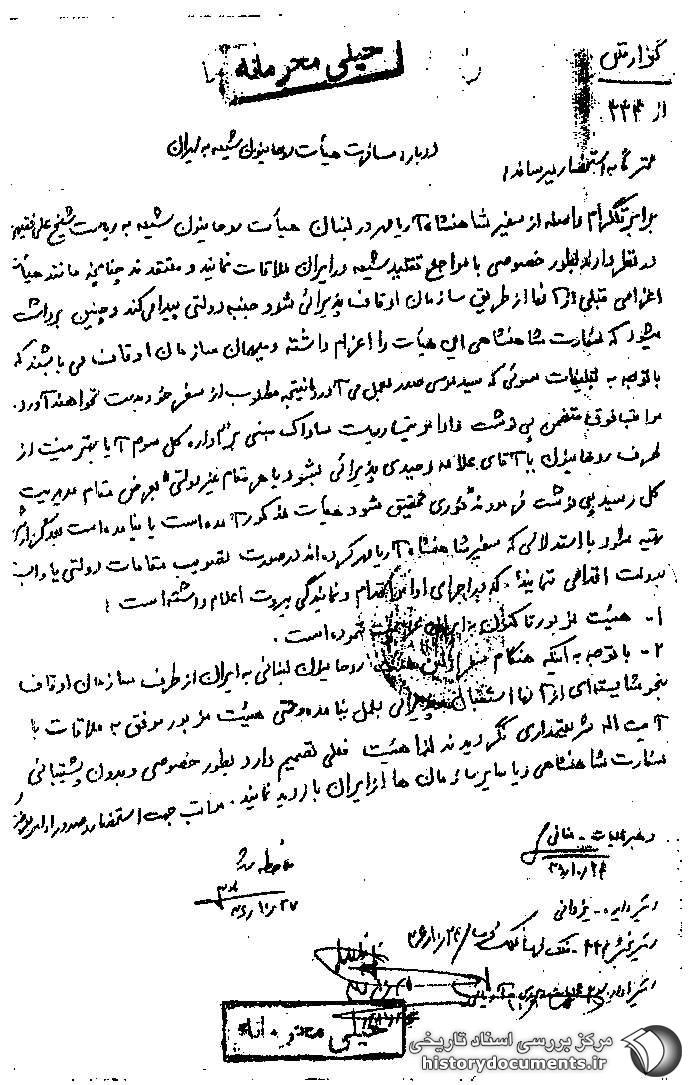 خیلی محرمانه
گزارش
از ۳۴۴
درباره: مسافرت هیأت روحانیون شیعه به ایران
محترماً به استحضار میرساند:
برابر تلگرام واصله از سفیر شاهنشاه آریامهر در لبنان هیأت روحانیون شیعه به ریاست شیخ علی فقیه
در نظر دارند بطور خصوصی با مراجع تقلید شیعه در ایران ملاقات نمایند و معتقدند چنانچه مانند هیأت
اعزامی قبلی از آنها از طریق سازمان اوقاف پذیرائی شود جنبه دولتی پیدا می‌کند و چنین برداشت
میشود که سفارت شاهنشاهی این هیأت را اعزام داشته و میهمان سازمان اوقاف می باشند که
با توجه به تبلیغات سوئی که سید موسی صدر بعمل می آورد نتیجه مطلوب از سفر خود بدست نخواهند آورد.
مراتب فوق متضمن پی نوشت ریاست ساواک مبنی بر "اداره کل سوم آیا بهتر نیست از
طرف روحانیون یا آقای علامه وحیدی پذیرائی بشود یا هر مقام غیر دولتی" بعرض مقام مدیریت
کل رسید پی نوشت فرمودند "فوری تحقیق شود هیأت مذکور آمده است یا نیامده است
تهیه شود با استدلالی که سفیر شاهنشاه آریامهر کرده‌اند در صورت تصویب مقامات دولتی یا
بدولت اقدامی ننمایند". که در اجرای اوامر اقدام و نمایندگی بیروت اعلام داشته است:
۱- هیئت مزبور تا کنون به ایران نموده است.
۲- با توجه به اینکه هنگام سفر روحانیون لبنانی به ایران از طرف سازمان اوقاف
بنحو شایسته‌ای از آنها استقبال و پذیرائی بعمل نیامده و حتی هیئت مزبور موفق به ملاقات با
آیت اله شریعتمداری نگردیدند لذا هیئت فعلی تصمیم دارد بطور خصوصی و بدون پشتیبانی
سفارت شاهنشاهی و یا سایر سازمان ها از ایران بازدید نمایند. مراتب جهت استحضار و صدور اوامر
رهبر عملیات -
ملاحظه شد
رئیس دایره - یزدانی
خیلی محرمانه
مرکز بررسی اسناد تاریخی
historydocuments.ir